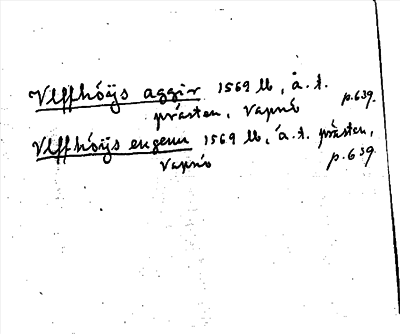 Vlffhöÿs aggir 1569 lb, å. t.
prästen, Vapnö p.639.
Vlffhöÿs engenn 1569 lb, å. t. prästen,
Vapnö p.639.